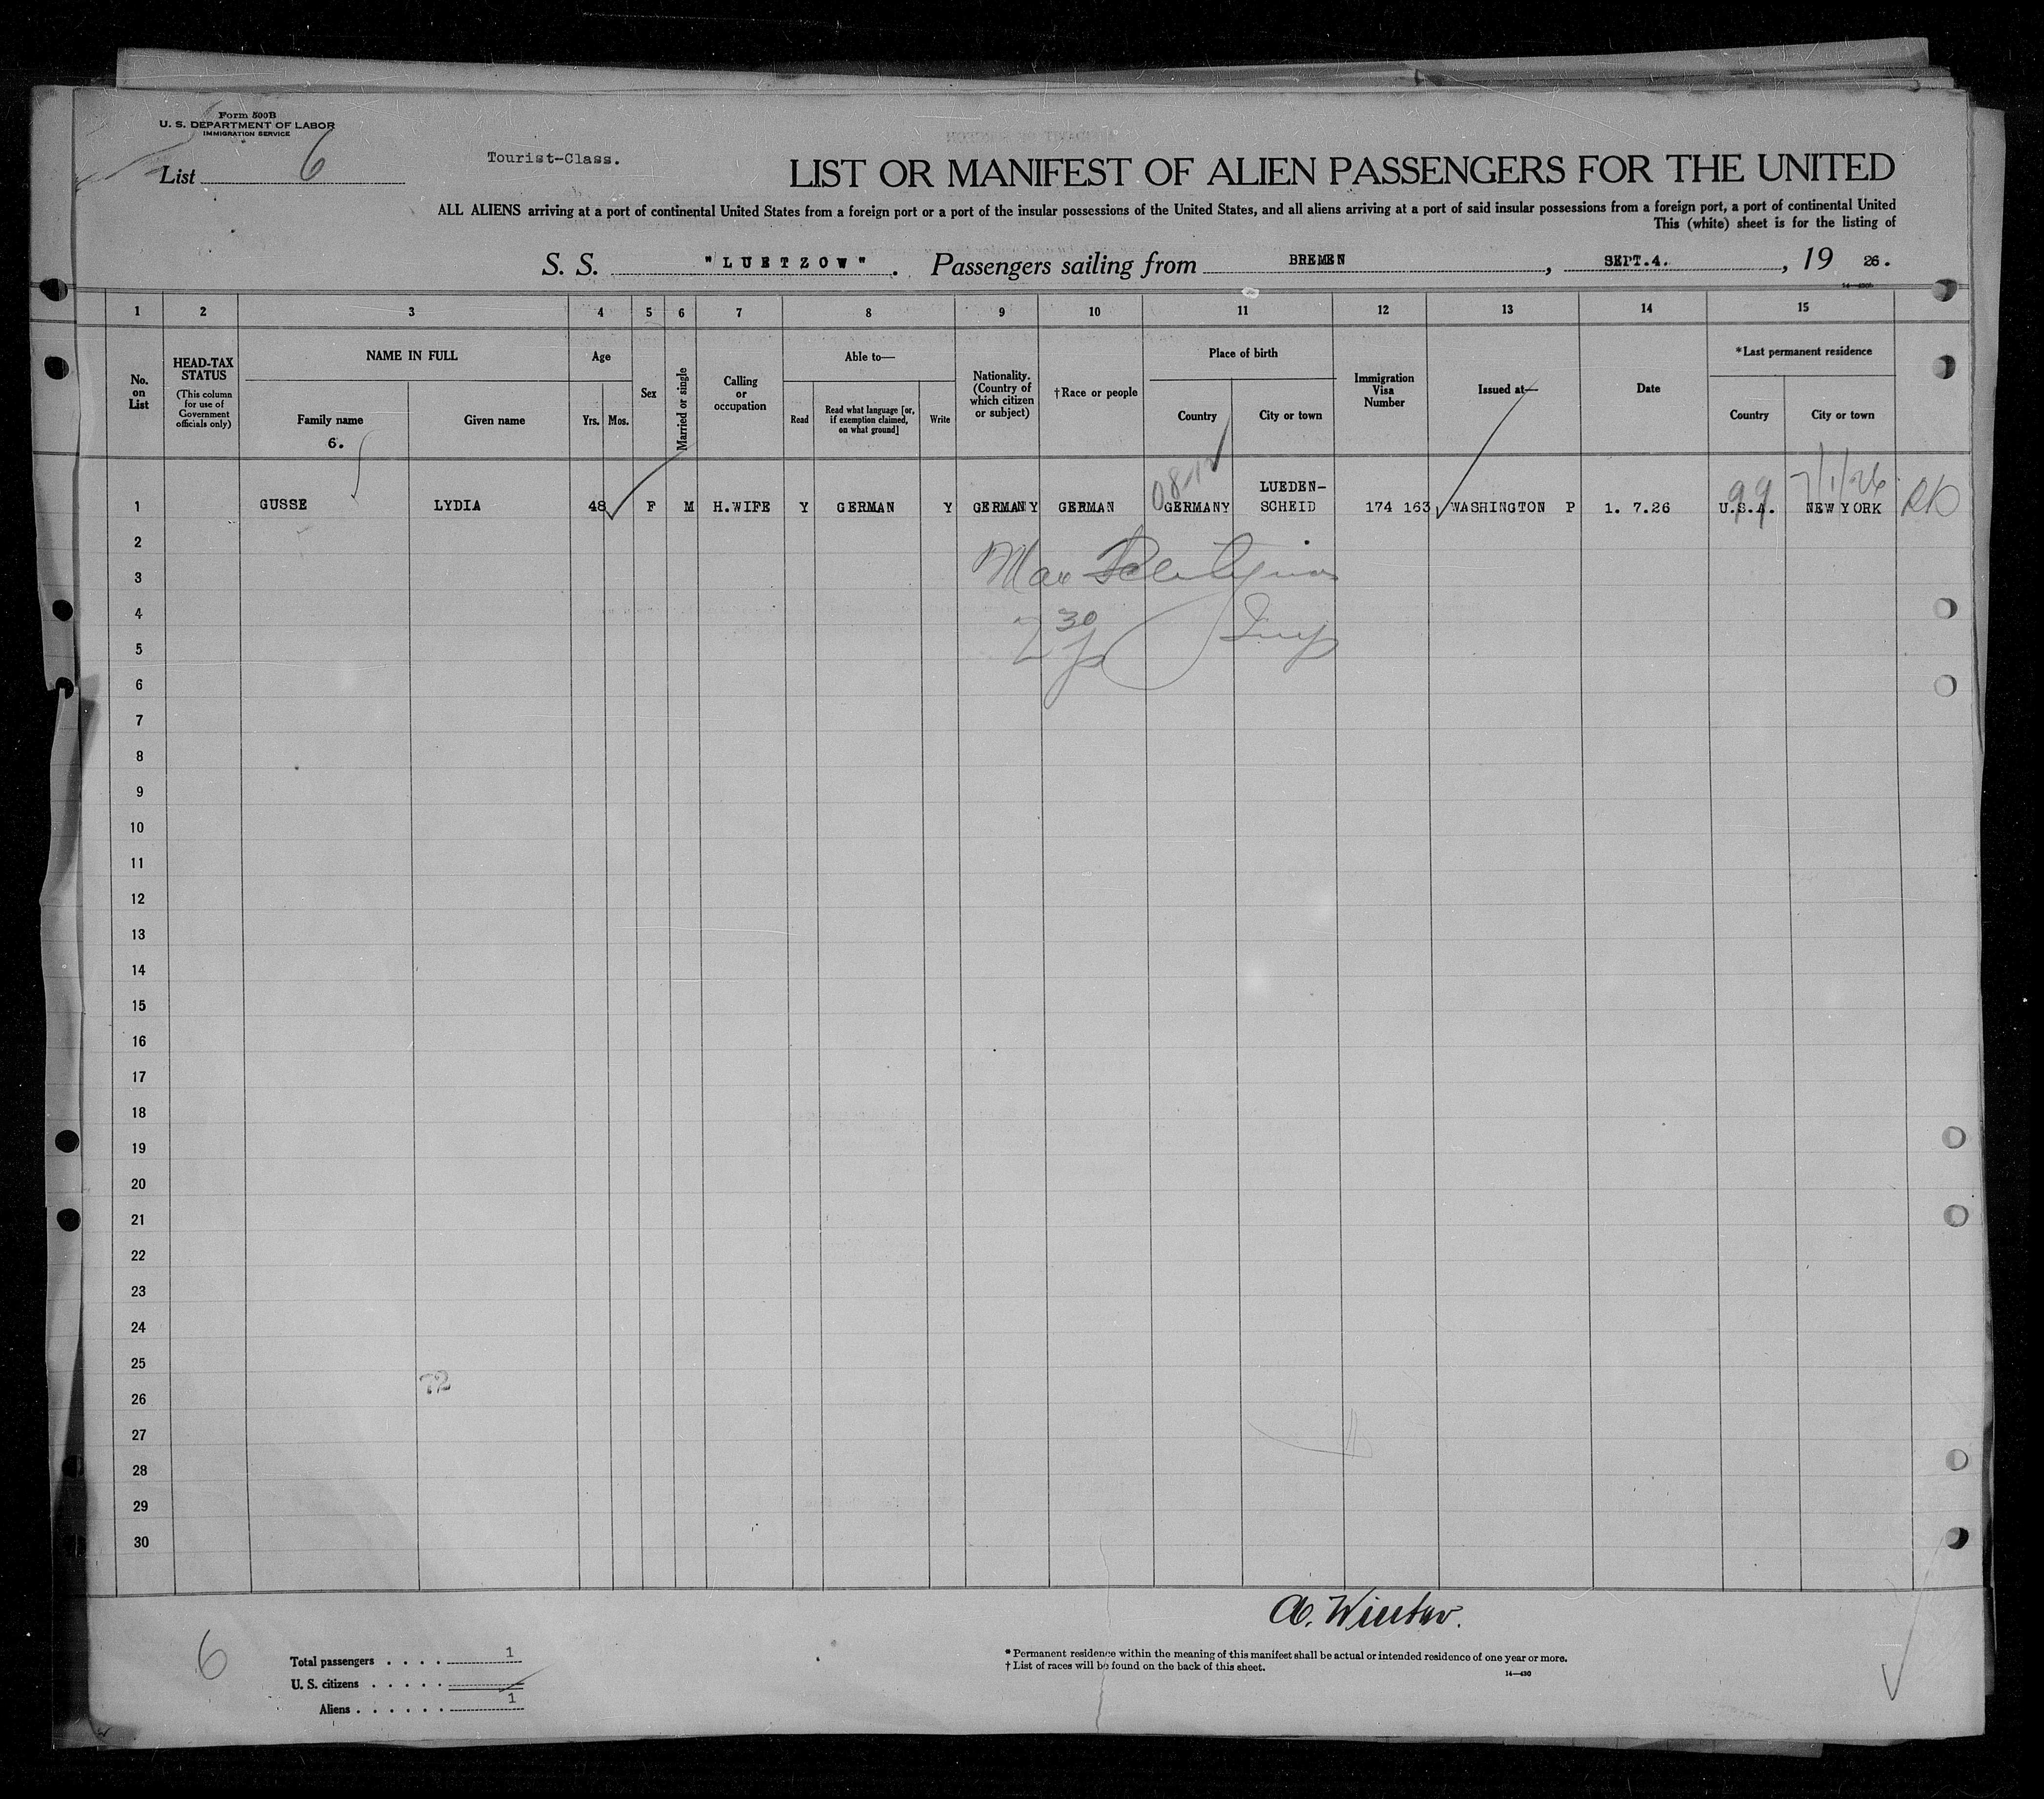 Form 500B
U. S. DEPARTMENT OF LABOR
IMMIGRATION SERVICE
List 6
Tourist-Class.
LIST OR MANIFEST OF ALIEN PASSENGERS FOR THE UNITED
ALL ALIENS arriving at a port of continental United States from a foreign port or a port of the insular possessions of the United States, and all aliens arriving at a port of said insular possessions from a foreign port, a port of continental United
This (white) sheet is for the listing of
S. S. "LUETZOW". Passengers sailing from BREMEN, SEPT.4., 19 26.
1 2 3 4 5 6 7 8 9 10 11 12 13 14 15
No. on List
HEAD-TAX STATUS
(This column for use of Government officials only)
NAME IN FULL
Family name
6.
Given name
Age
Yrs. Mos.
Sex
Married or single
Calling or occupation
Able to—
Read
Read what language [or, if exemption claimed, on what ground]
Write
Nationality. (Country of which citizen or subject)
†Race or people
Place of birth
Country
City or town
Immigration Visa Number
Issued at—
Date
*Last permanent residence
Country
City or town
1 GUSSE LYDIA 48 F M H.WIFE Y GERMAN Y GERMANY GERMAN GERMANY LUEDEN-SCHEID 174 163 WASHINGTON P 1. 7.26 U.S.A. NEW YORK
99
7/1/26
2
Max
3
4
30
5
6
7
8
9
10
11
12
13
14
15
16
17
18
19
20
21
22
23
24
25
72
26
27
28
29
30
A. Winter.
6
Total passengers . . . . 1
U. S. citizens . . . . .
Aliens . . . . . . 1
* Permanent residence within the meaning of this manifest shall be actual or intended residence of one year or more.
† List of races will be found on the back of this sheet.
14—430